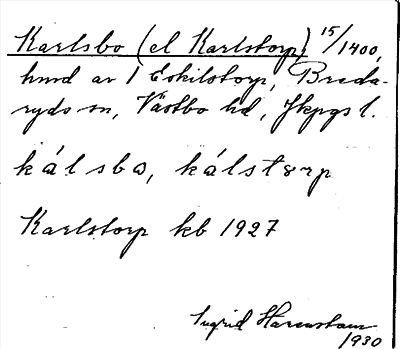 Karlsbo (el Karlstorp) 15/1400,
hmd av 1 Eskilstorp, Breda-
ryds sn, Västbo hd, Jkpgs l.
kálsbo, kálstørp
Karlstorp kb 1927
Ingrid Harenstam
1930